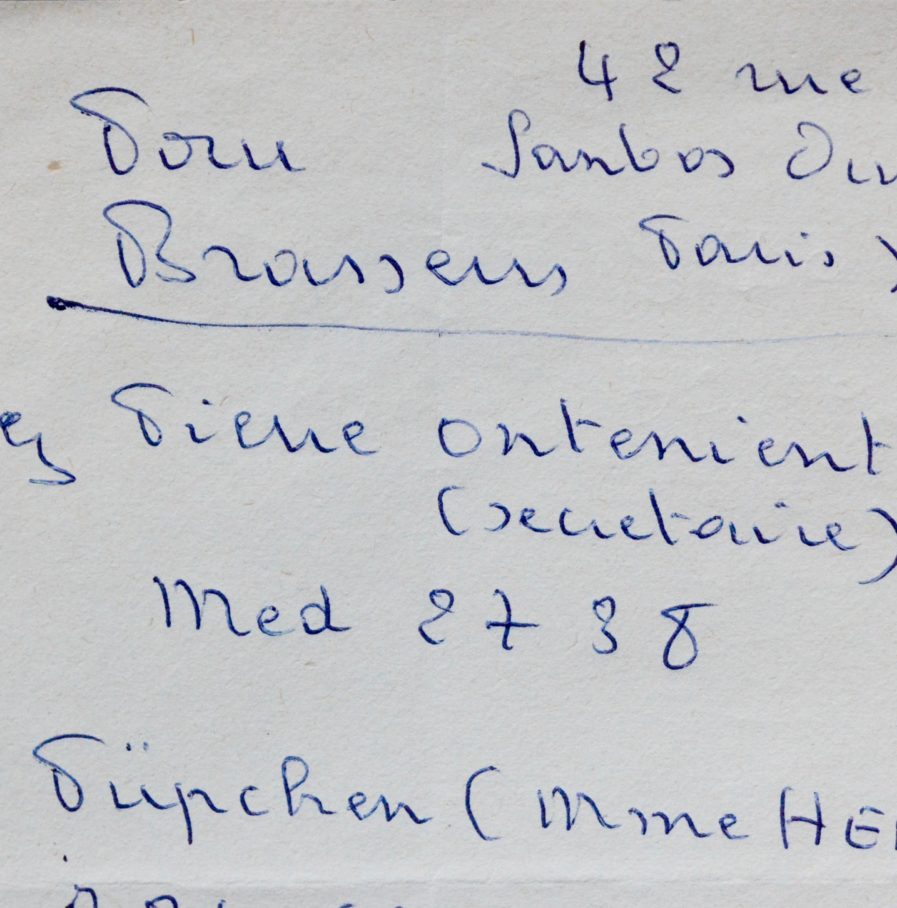 42 rue
Pour Santos Du
Brassens Paris X
ez Pierre Onteniente
(secretaire)
Med 27 38
Püpchen (Mme HE